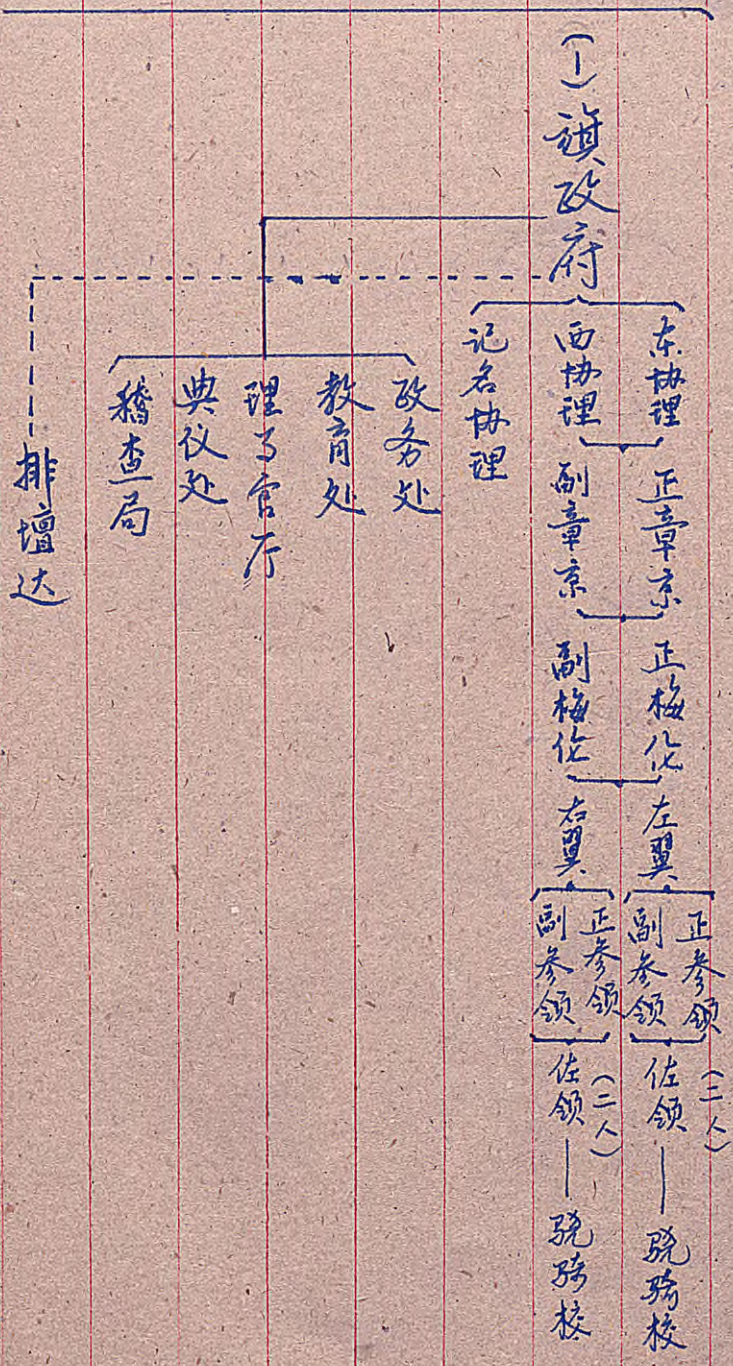 (一)旗政府
东协理
西协理
记名协理
正章京
副章京
正梅伦
副梅伦
左翼
右翼
正参领
副参领
正参领
副参领
(二人)
佐领
(二人)
佐领
骁骑校
骁骑校
政务处
教育处
理事官厅
典仪处
稽查局
排壇达